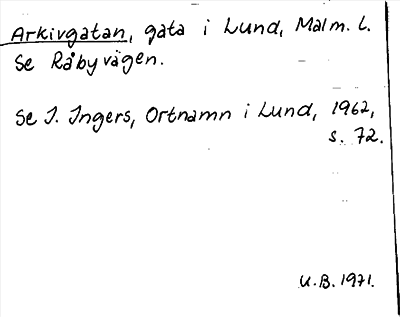 Arkivgatan, gata i Lund, Malm. l.
Se Råbyvägen.
Se I. Ingers, Ortnamn i Lund, 1962,
s. 72.
U.B. 1971.